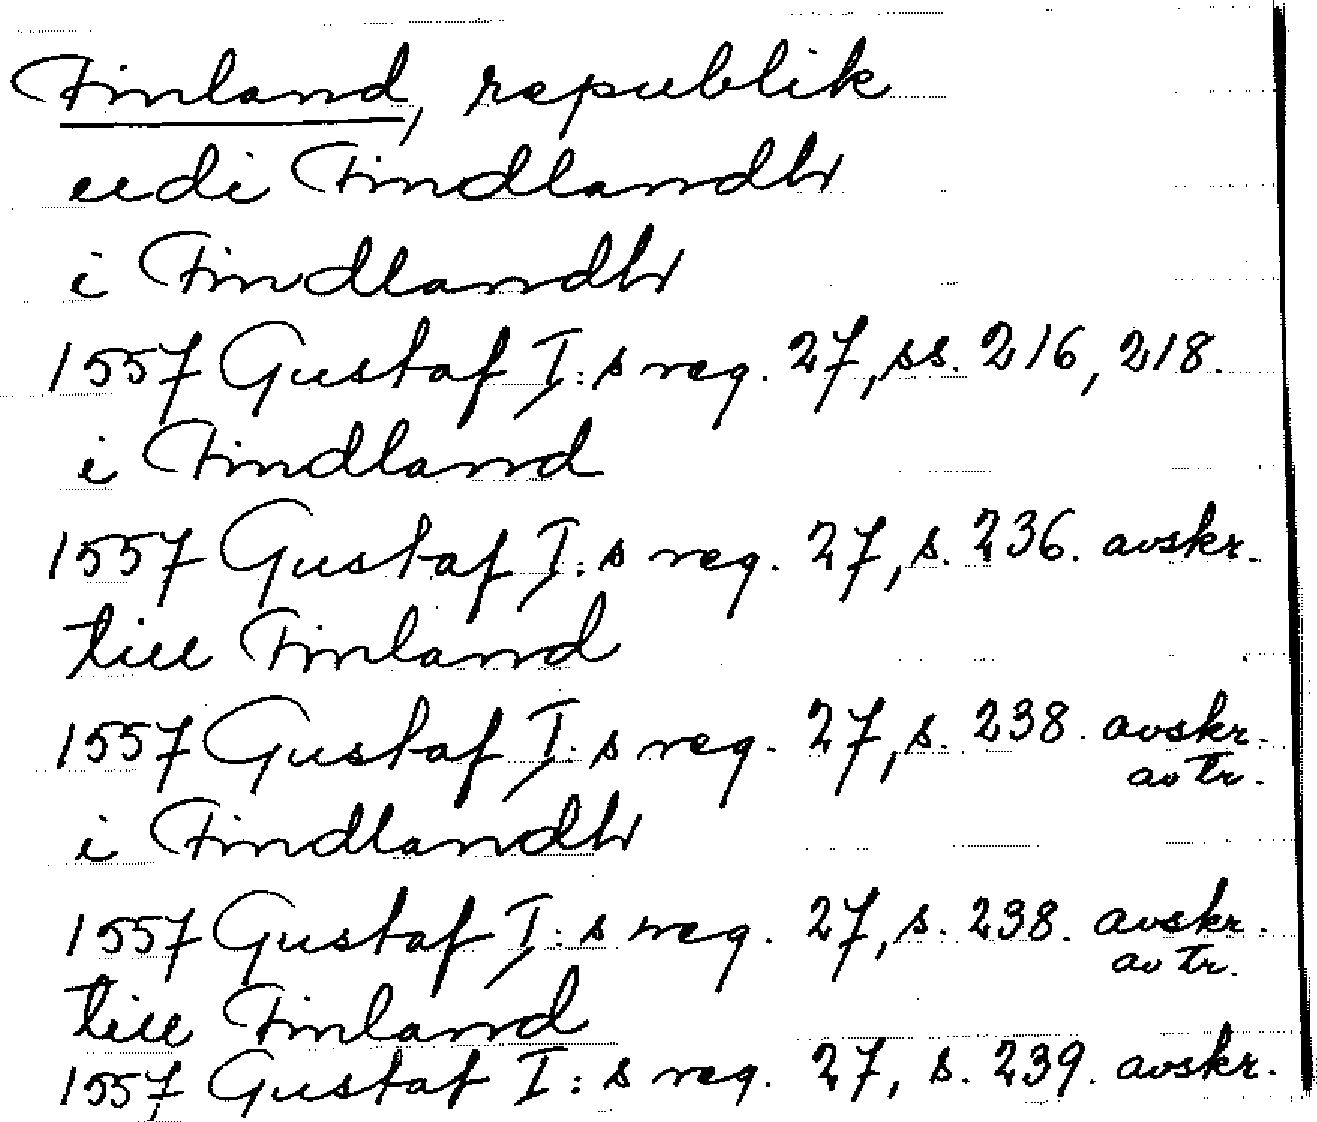 Finland, republik
udi Findlandh
i Findlandh
1557 Gustaf I:s reg. 27, ss. 216, 218.
i Findland
1557 Gustaf I:s reg. 27, s. 236. avskr.
till Finland
1557 Gustaf I:s reg. 27, s. 238. avskr.
av tr.
i Findlandh
1557 Gustaf I:s reg. 27, s. 238. avskr.
av tr.
till Finland
1557 Gustaf I:s reg. 27, s. 239. avskr.